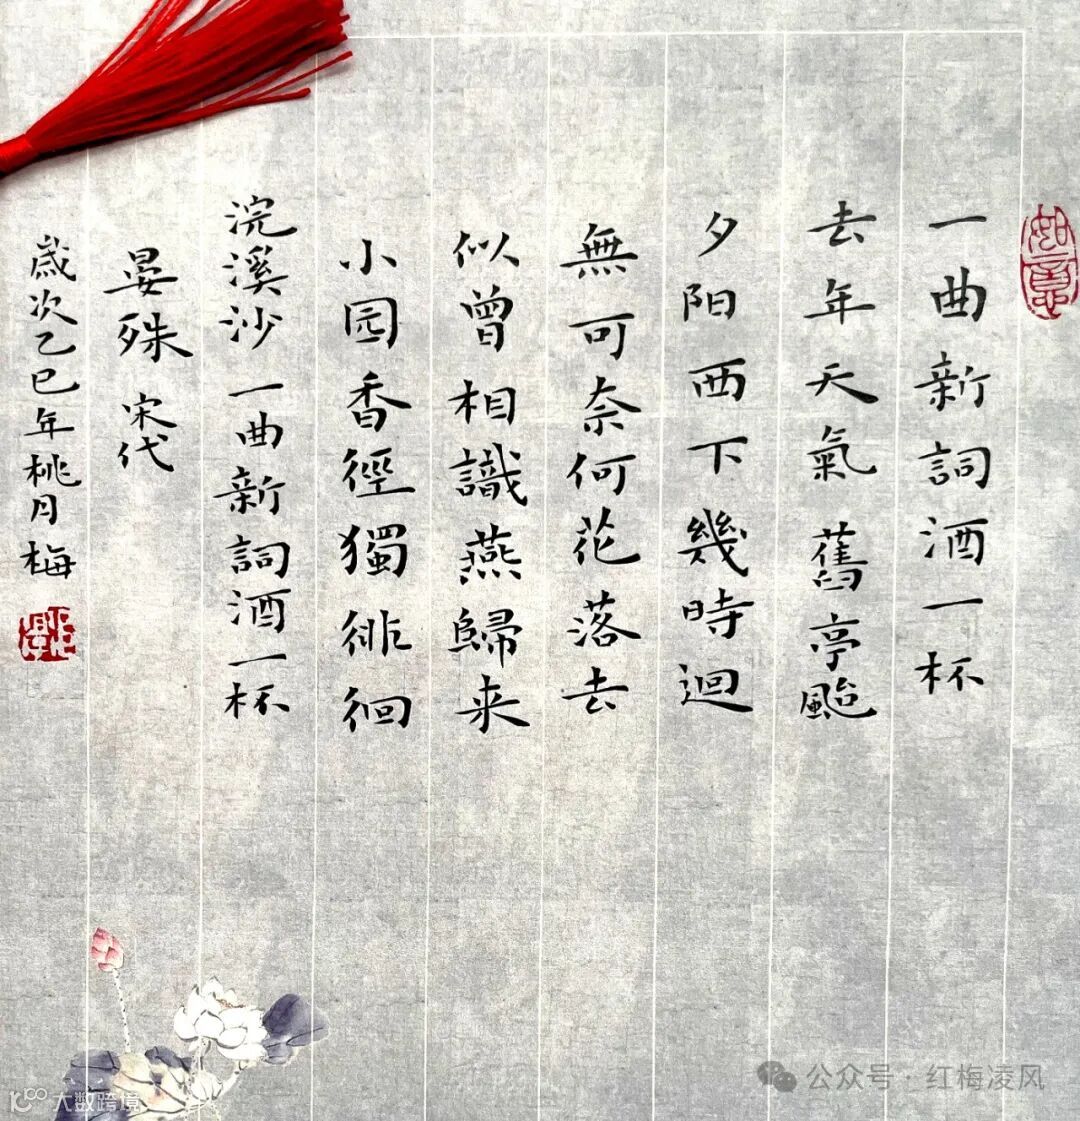 如意
一曲新詞酒一杯
去年天氣舊亭颱
夕阳西下幾時迴
無可奈何花落去
似曾相識燕歸来
小园香徑獨徘徊
浣溪沙 一曲新詞酒一杯
晏殊 宋代
歲次乙巳年桃月梅
公众号 · 红梅凌风
大数跨境